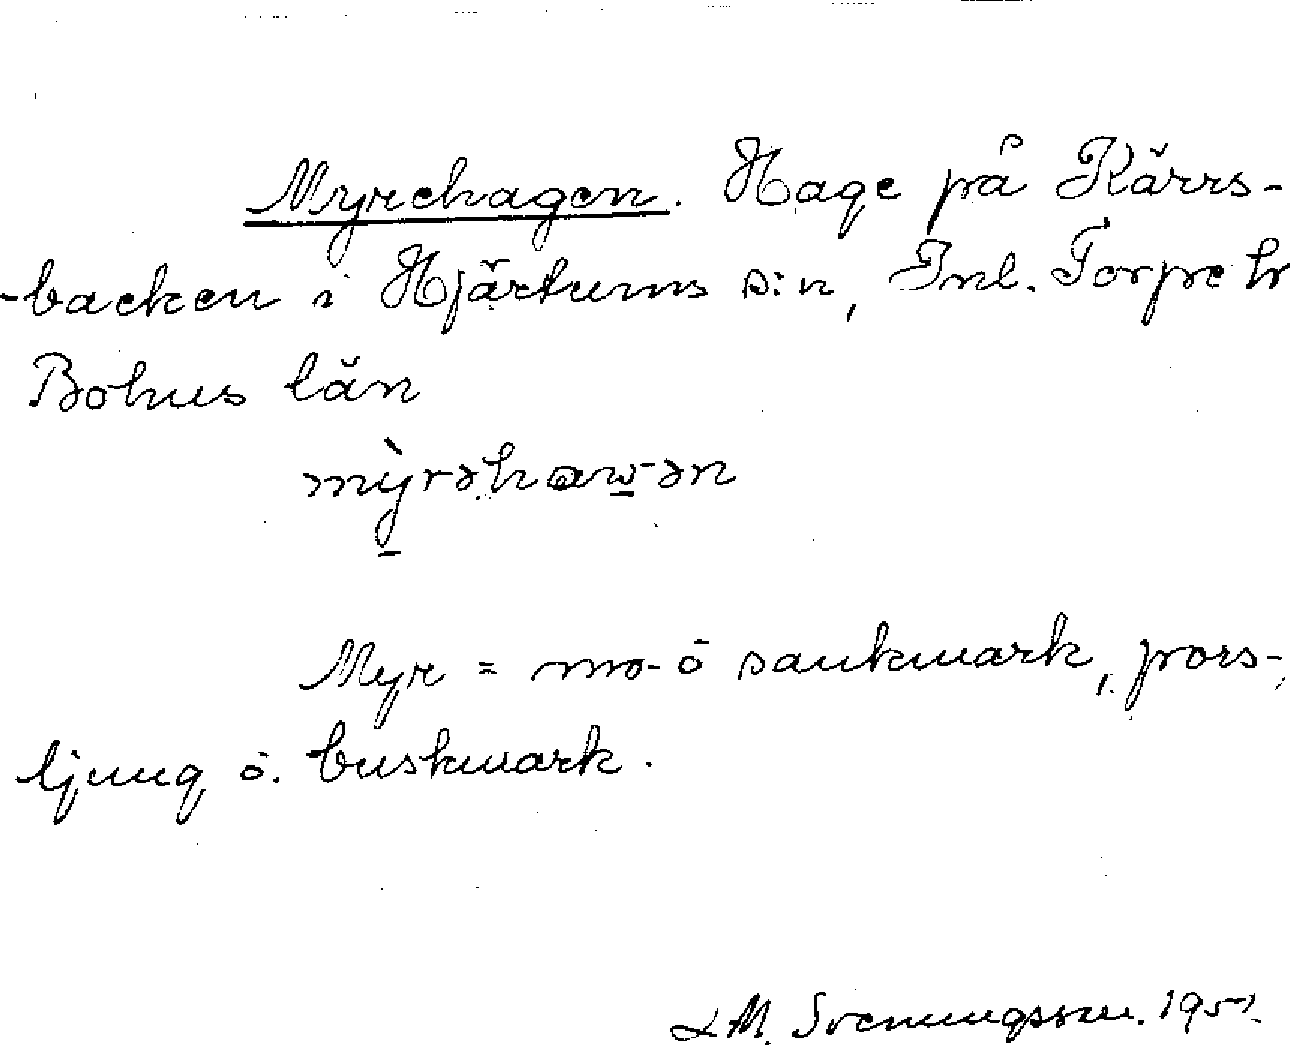 Myrehagen. Hage på Kärrs-
-backen i Hjärtums s:n, Inl. Torpe hr
Bohus län
mỳrəhaw-ən
Myr = mo- ö sankmark, pors-,
ljung ö. buskmark.
L M. Svenungsson. 1951.